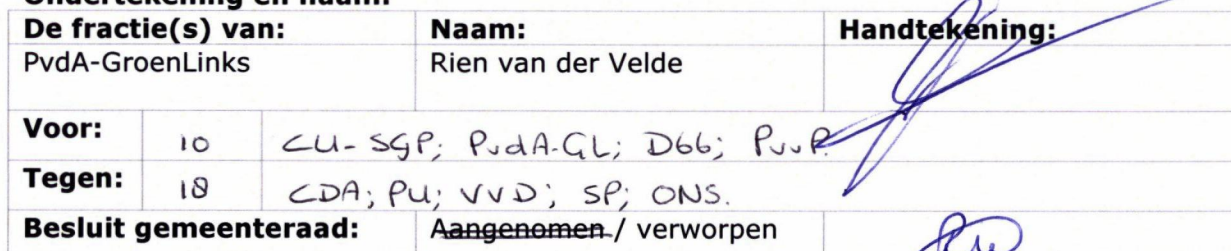 De fractie(s) van: Naam: Handtekening:
PvdA-GroenLinks Rien van der Velde
Voor: 10 CU-SGP; PvdA-GL; D66; PvvP.
Tegen: 18 CDA; PU; VVD; SP; ONS.
Besluit gemeenteraad: Aangenomen / verworpen